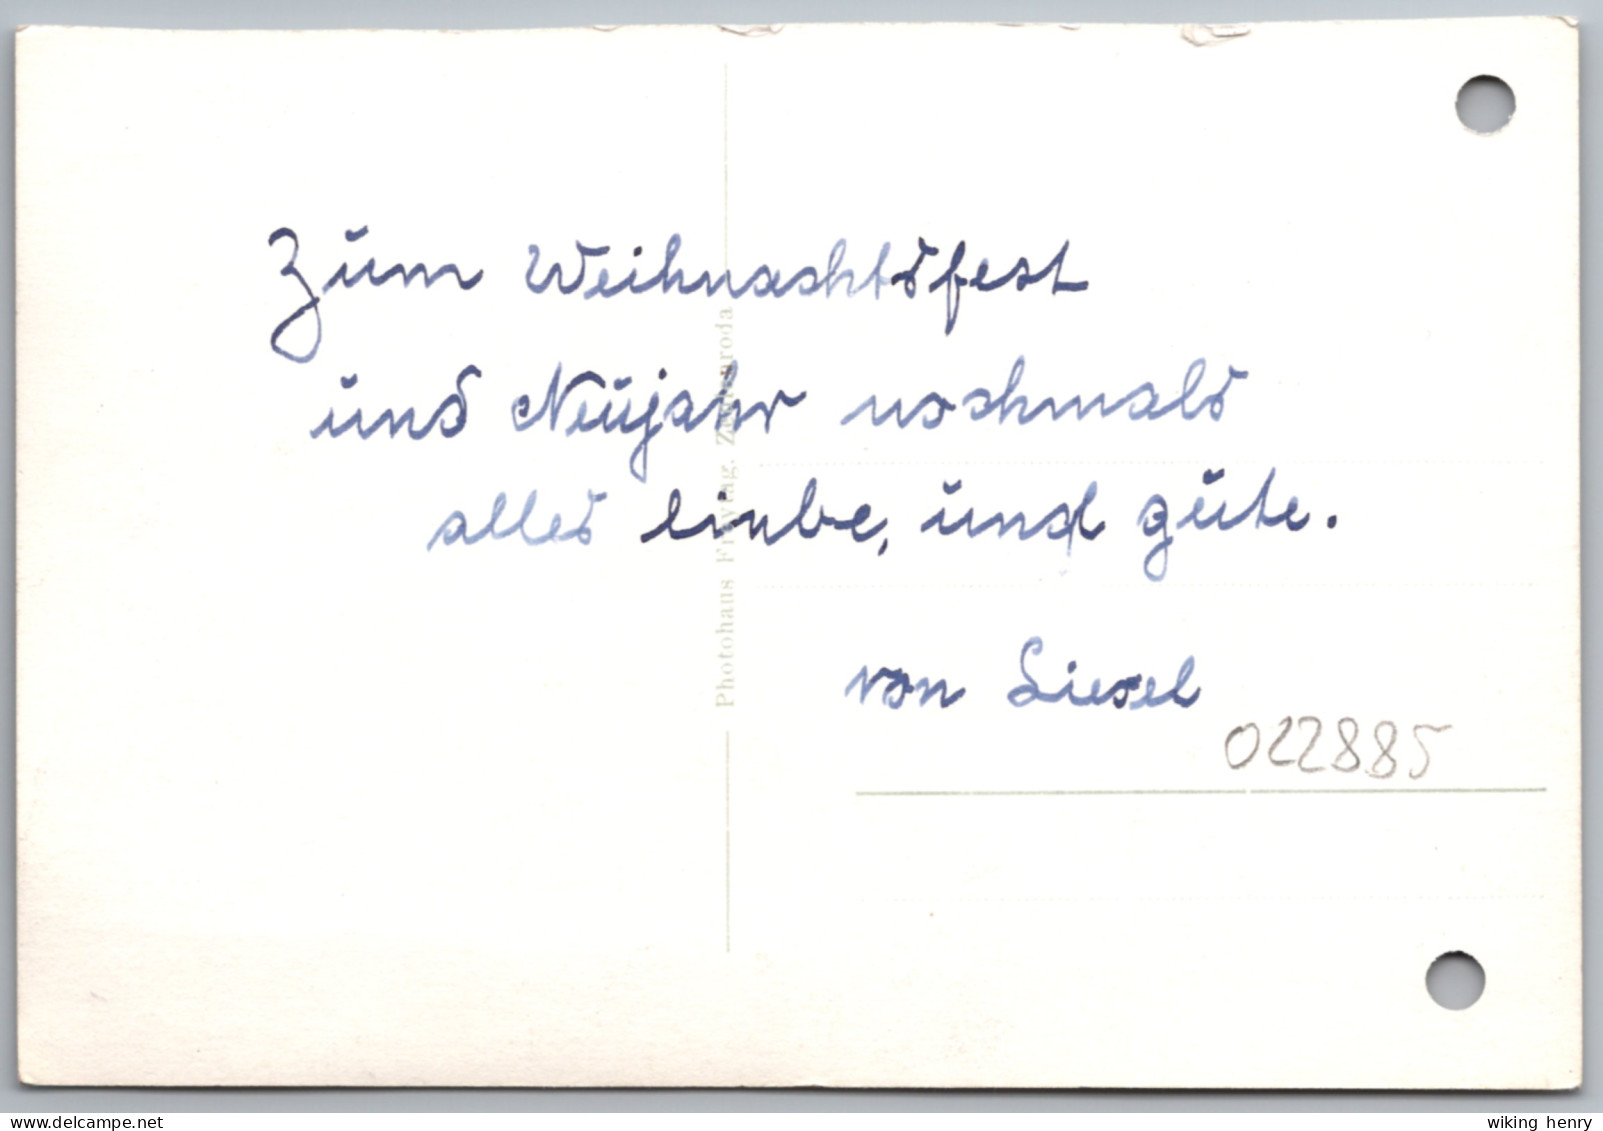 Zum Weihnachtsfest
und Neujahr nochmals
alles liebe, und gute.
von Liesel
022885
Photohaus Freytag, Zeulenroda
allesvoor.com
wiking henry